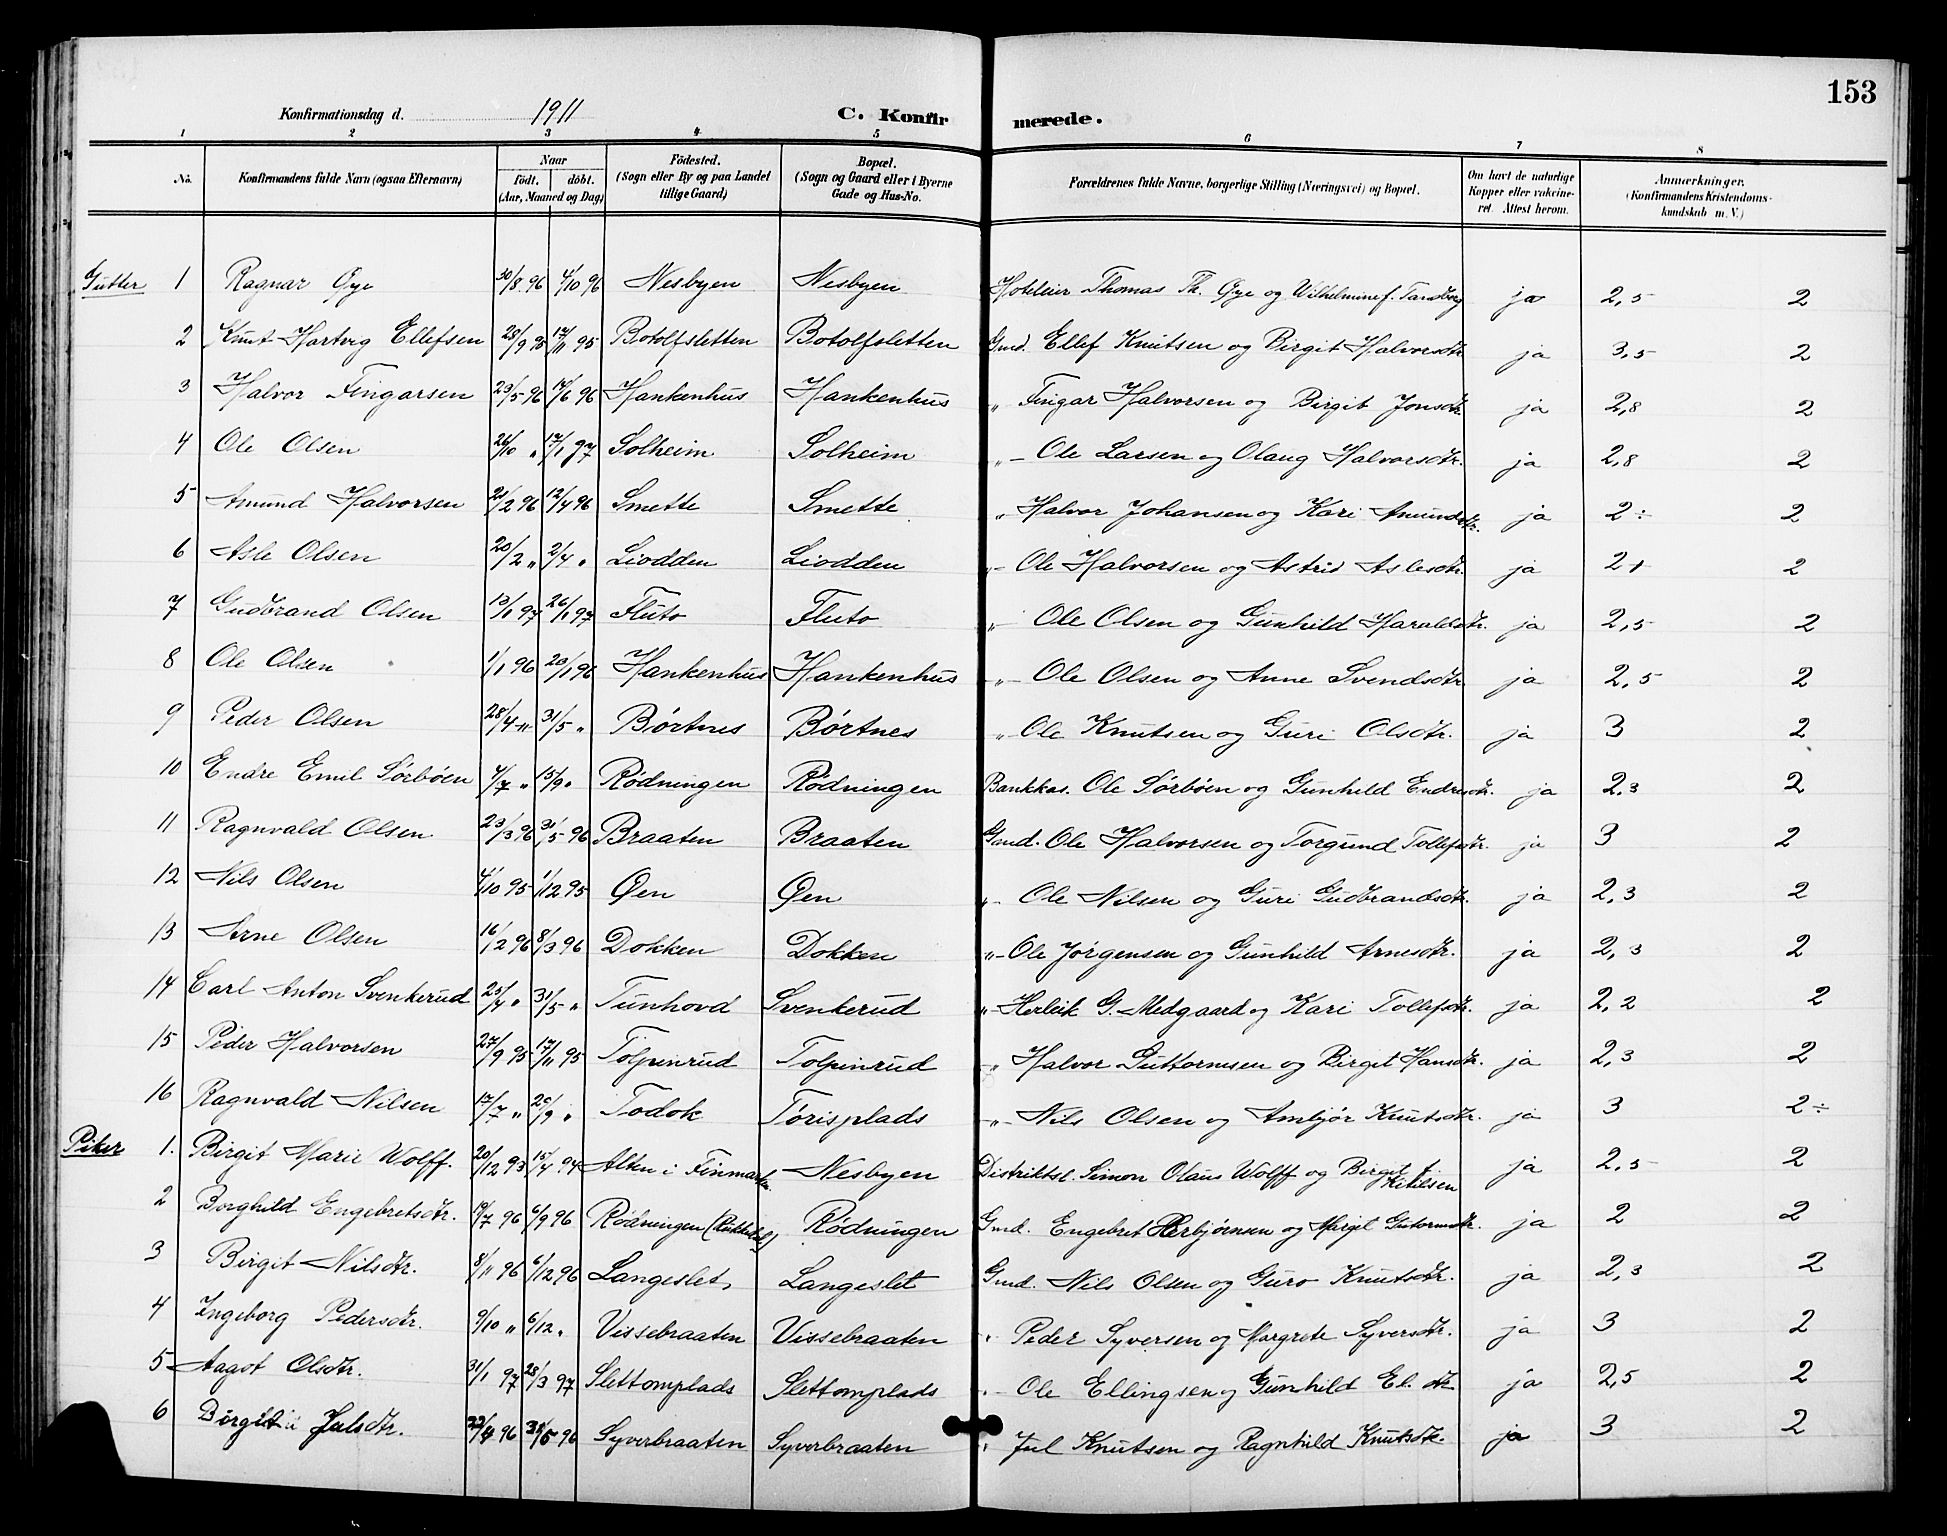 153
Konfirmationsdag d. 1911 C. Konfirmerede.
1 2 3 4 5 6 7 8
No. Konfirmandens fulde Navn (ogsaa Efternavn) Naar födt. döbt. (Aar, Maaned og Dag) Födested. (Sogn eller By og paa Landet tillige Gaard) Bopæl. (Sogn og Gaard eller i Byerne Gade og Hus-No. Forældrenes fulde Navne, borgerlige Stilling (Næringsvei) og Bopæl. Om havt de naturlige Kopper eller vakcineret. Attest herom. Anmærkninger. (Konfirmandens Kristendomskundskab m. V.)
Gutter 1 Ragnar Øye 30/8 96 4/10 96 Nesbyen Nesbyen Hoteleier Thomas Th. Øye og Wilhelmine f. Tandberg ja 2,5 2
2 Knut Hartvig Ellefsen 28/9 95 17/11 95 Botolfsletten Botolfsletten Gmd. Ellef Knutsen og Birgit Halvorsdtr. ja 3,5 2
3 Halvor Fingarsen 23/5 96 14/6 96 Hankenhus Hankenhus „ Fingar Halvorsen og Birgit Jonsdtr. ja 2,8 2
4 Ole Olsen 26/10 „ 17/1 97 Solheim Solheim „- Ole Larsen og Olaug Halvorsdtr. ja 2,8 2
5 Amund Halvorsen 21/2 96 12/4 96 Smette Smette „- Halvor Johansen og Kari Amundsdtr. ja 2÷ 2
6 Asle Olsen 20/2 „ 2/4 „ Liodden Liodden „- Ole Halvorsen og Astrid Aslesdtr. ja 2+ 2
7 Gudbrand Olsen 13/1 97 26/1 97 Fluto Fluto „- Ole Olsen og Gunhild Haraldsdtr. ja 2,5 2
8 Ole Olsen 1/1 96 20/1 96 Hankenhus Hankenhus „- Ole Olsen og Anne Svendsdtr. ja 2,5 2
9 Peder Olsen 28/4 „ 31/5 „ Børtnes Børtnes „- Ole Knutsen og Guri Olsdtr. ja 3 2
10 Endre Emil Sørbøen 4/7 „ 15/9 „ Rødningen Rødningen Bankkas. Ole Sørbøen og Gunhild Endresdtr. ja 2,3 2
11 Ragnvald Olsen 23/3 96 31/5 96 Braaten Braaten Gmd. Ole Halvorsen og Torgund Tollefsdtr. ja 3 2
12 Nils Olsen 4/10 95 1/12 95 Øen Øen „- Ole Nilsen og Guri Gudbrandsdtr. ja 2,3 2
13 Arne Olsen 16/2 96 8/3 96 Dokken Dokken „- Ole Jørgensen og Gunhild Arnesdtr. ja 2,3 2
14 Carl Anton Svenkerud 25/4 „ 31/5 „ Tunhovd Svenkerud „- Herleik G. Medgaard og Kari Tollefsdtr. ja 2,2 2
15 Peder Halvorsen 27/9 95 17/11 95 Tolpinrud Tolpinrud „ Halvor Guttormsen og Birgit Hansdtr. ja 2,3 2
16 Ragnvald Nilsen 17/7 „ 20/9 „ Todok Tørisplads „- Nils Olsen og Ambjør Knutsdtr. ja 3 2÷
Piker 1. Birgit Marie Wolff. 20/12 93 15/4 94 Alten i Finmarken Nesbyen Distriktsl. Simon Olaus Wolff og Birgit f. Ketilsen ja 2,5 2
2 Borghild Engebretsdtr. 19/7 96 6/9 96 Rødningen Rødningen Gmd. Engebret Herbjørnsen og Margit Gutormsdtr. ja 2 2
3 Birgit Nilsdtr. 8/11 96 6/12 96 Langeslet Langeslet Gmd. Nils Olsen og Guro Knutsdtr. ja 2,3 2
4 Ingeborg Pedersdtr. 9/10 „ 6/12 „ Vissebraaten Vissebraaten „ Peder Syversen og Margrete Syversdtr. ja 3 2
5 Aagot Olsdtr. 31/1 97 28/3 97 Slettomplads Slettomplads „- Ole Ellingsen og Gunhild El. dtr ja 2,5 2
6 Birgit Julsdtr. 22/4 96 31/5 96 Syverbraaten Syverbraaten „ Jul Knutsen og Ragnhild Knutsdtr. ja 3 2